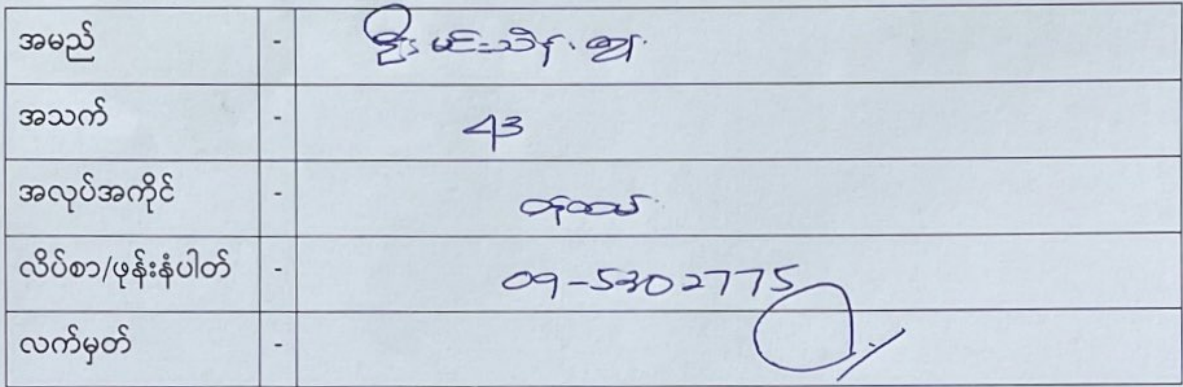 အမည် - ဦးမင်းသိန်းကျွန်
အသက် - 43
အလုပ်အကိုင် - ဝန်ထမ်း
လိပ်စာ/ဖုန်းနံပါတ် - 09-5302775
လက်မှတ် -